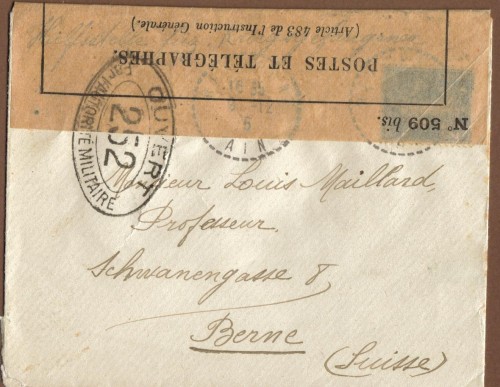 (Article 483 de l'Instruction Générale.)
POSTES ET TÉLÉGRAPHES.
N° 509 bis.
OUVERT
252
Par l'AUTORITÉ MILITAIRE
AIN
Monsieur Louis Maillard,
Professeur.
Schwanengasse 8
Berne
(Suisse)